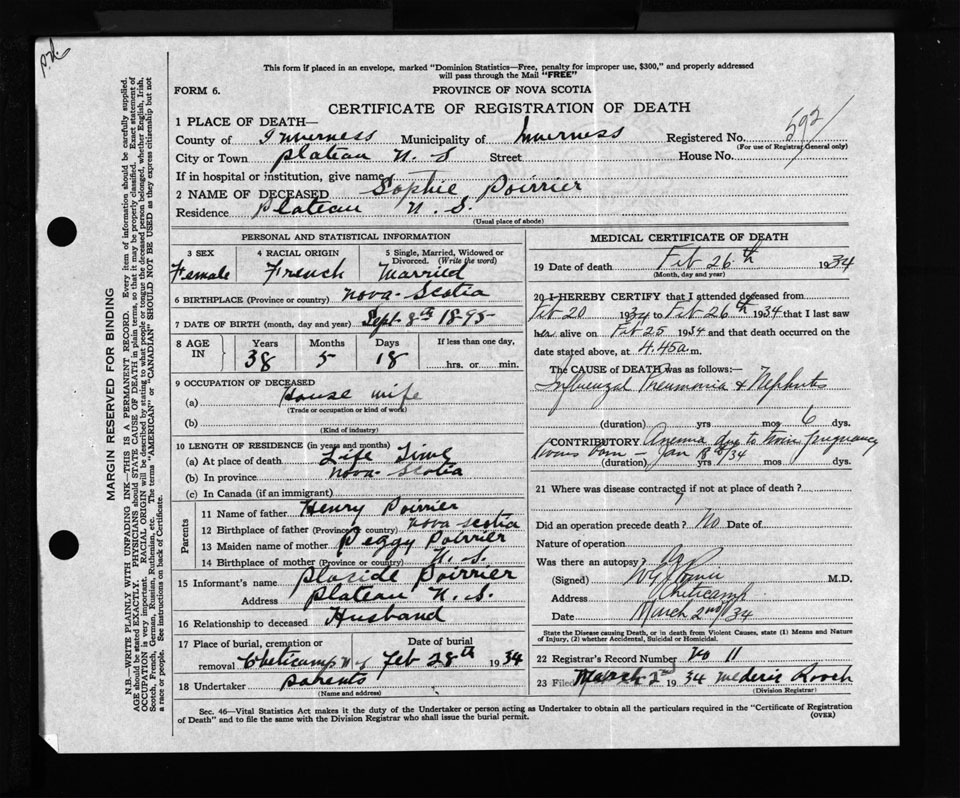 This form if placed in an envelope, marked "Dominion Statistics—Free, penalty for improper use, $300," and properly addressed
will pass through the Mail "FREE"
FORM 6.
PROVINCE OF NOVA SCOTIA
CERTIFICATE OF REGISTRATION OF DEATH
1 PLACE OF DEATH—
County of Inverness Municipality of Inverness Registered No. 592
(For use of Registrar General only)
City or Town Plateau N. S Street House No.
If in hospital or institution, give name
2 NAME OF DECEASED Sophie Poirrier
Residence Plateau N. S.
(Usual place of abode)
PERSONAL AND STATISTICAL INFORMATION
3 SEX 4 RACIAL ORIGIN 5 Single, Married, Widowed or
Divorced. (Write the word)
Female French Married
6 BIRTHPLACE (Province or country) Nova-Scotia
7 DATE OF BIRTH (month, day and year) Sept 8th 1895
8 AGE IN Years Months Days If less than one day,
38 5 18 hrs. or min.
9 OCCUPATION OF DECEASED
(a) House wife
(Trade or occupation or kind of work)
(b)
(Kind of industry)
10 LENGTH OF RESIDENCE (in years and months)
(a) At place of death Life Time
(b) In province Nova-Scotia
(c) In Canada (if an immigrant)
Parents
11 Name of father Henry Poirrier
12 Birthplace of father (Province or country) Nova Scotia
13 Maiden name of mother Peggy Poirrier
14 Birthplace of mother (Province or country) N. S.
15 Informant's name Placide Poirrier
Address Plateau N. S.
16 Relationship to deceased Husband
17 Place of burial, cremation or Date of burial
removal Cheticamp N-S Feb 28th 1934
18 Undertaker parents
(Name and address)
MEDICAL CERTIFICATE OF DEATH
19 Date of death Feb 26th 1934
(Month, day and year)
20 I HEREBY CERTIFY that I attended deceased from
Feb 20 1934 to Feb 26th 1934 that I last saw
her alive on Feb 25 1934 and that death occurred on
date stated above, at 4.45a m.
The CAUSE of DEATH was as follows:—
Influenzal Pneumonia & Nephritis
(duration) yrs mos 6 dys.
CONTRIBUTORY Anemia due to twin pregnancy
twins born — Jan 18th/34
(duration) yrs mos dys.
21 Where was disease contracted if not at place of death?
Did an operation precede death? No Date of
Nature of operation
Was there an autopsy?
(Signed) M.D.
Address Cheticamp
Date March 2nd/34
State the Disease causing Death, or in death from Violent Causes, state (1) Means and Nature
of Injury, (2) whether Accidental, Suicidal or Homicidal.
22 Registrar's Record Number No 11
23 Filed March 2nd 1934 Mederic Roach
(Division Registrar)
Sec. 46—Vital Statistics Act makes it the duty of the Undertaker or person acting as Undertaker to obtain all the particulars required in the "Certificate of Registration
of Death" and to file the same with the Division Registrar who shall issue the burial permit.
(OVER)
MARGIN RESERVED FOR BINDING
N.B.—WRITE PLAINLY WITH UNFADING INK—THIS IS A PERMANENT RECORD. Every item of information should be carefully supplied.
AGE should be stated EXACTLY. PHYSICIANS should STATE CAUSE OF DEATH in plain terms, so that it may be properly classified. Exact statement of
OCCUPATION is very important. RACIAL ORIGIN will be described by stating to what people or tongue the deceased person belonged, whether English, Irish,
Scotch, French, German, Russian, Ruthenian, etc. The terms "AMERICAN" or "CANADIAN" SHOULD NOT BE USED as they express citizenship but not
a race or people. See instructions on back of Certificate.